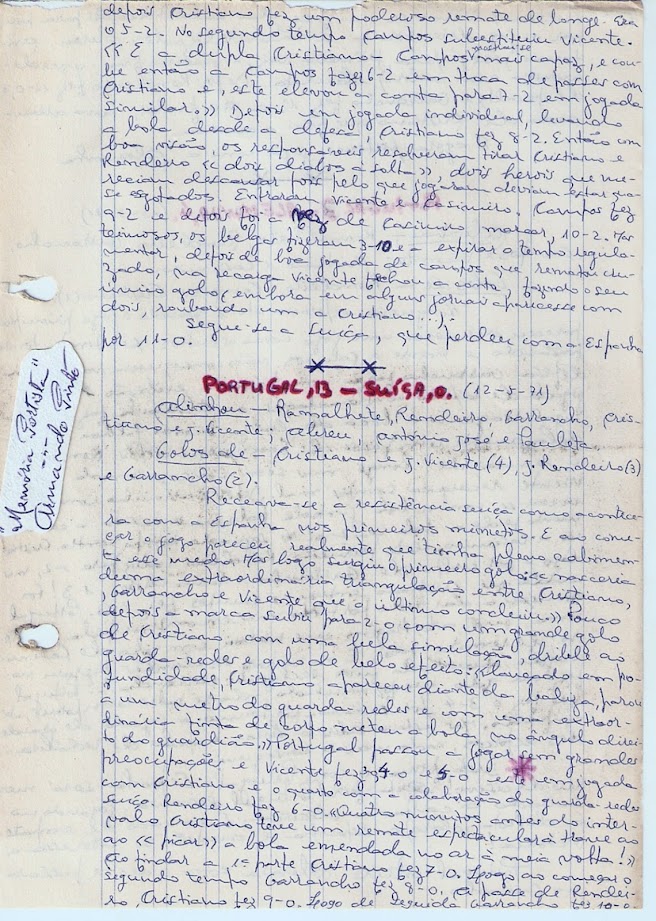 depois Cristiano fez um poderoso remate de longe. Era
o 5-2. No segundo tempo Campos substituiu Vicente.
«E a dupla Cristiano - Campos mostrou-se mais capaz, e cou-
be então a Campos fazer 6-2 em troca de passes com
Cristiano e, este elevou a conta para 7-2 em jogada
similar.» Depois em jogada individual, levando
a bola desde a defesa, Cristiano fez 8-2. Então com
boa visão, os responsáveis resolveram tirar Cristiano e
Rendeiro «dois diabos à solta», dois herois que me-
reciam descansar pois pelo que jogaram deviam estar qua-
se esgotados. Entraram Vicente e Casimiro. Campos fez
9-2 e depois foi a vez de Casimiro marcar, 10-2. Mas
teimosos, os belgas fizeram 3-10 e - expirar o tempo regula-
mentar, depois de boa jogada de Campos que rematou cru-
zado, na recarga Vicente fechou a conta, fazendo o seu
único golo (embora em alguns jornais aparecesse com
dois, roubando um a Cristiano...).
Segue-se a Suíça, que perdeu com a Espanha
por 11-0.
PORTUGAL, 13 - SUÍÇA, 0. (12-5-71)
Alinhou - Ramalhete, Rendeiro, Garrancho, Cris-
tiano e J. Vicente; Abreu, António José e
Golos de - Cristiano e J. Vicente (4), J. Rendeiro (3)
e Garrancho (2).
Receava-se a resistência suíça como acontece-
ra com a Espanha nos primeiros minutos. E ao come-
çar o jogo pareceu realmente que tinha pleno cabimen-
to esse medo. Mas logo surgiu o primeiro golo: «nasceria
de uma extraordinária triangulação entre Cristiano,
Garrancho e Vicente que o último concluiu.» Pouco
depois a marca subiu para 2-0 com um grande golo
de Cristiano com uma bela simulação, drible ao
guarda-redes e golo de belo efeito: «lançado em pro-
fundidade, Cristiano apareceu diante da baliza, parou
a um metro do guarda redes e com uma extraor-
dinária finta de corpo meteu a bola no ângulo direi-
to do guardião.» Portugal passou a jogar sem grandes
preocupações e Vicente fez 4-0 e 5-0 este em jogada
com Cristiano e o quarto com a colaboração do guarda-redes
suíço. Rendeiro fez 6-0. «Quatro minutos antes do inter-
valo Cristiano teve um remate espectacular à trave ao
ao «picar» a bola emendada no ar à meia volta!»
Ao findar a 1ª parte Cristiano fez 7-0. Logo ao começar o
segundo tempo Garrancho fez 8-0. A passe de Rendei-
ro, Cristiano fez 9-0. Logo de seguida Garrancho fez 10-0
"Memória Portista"
Armando Pinto